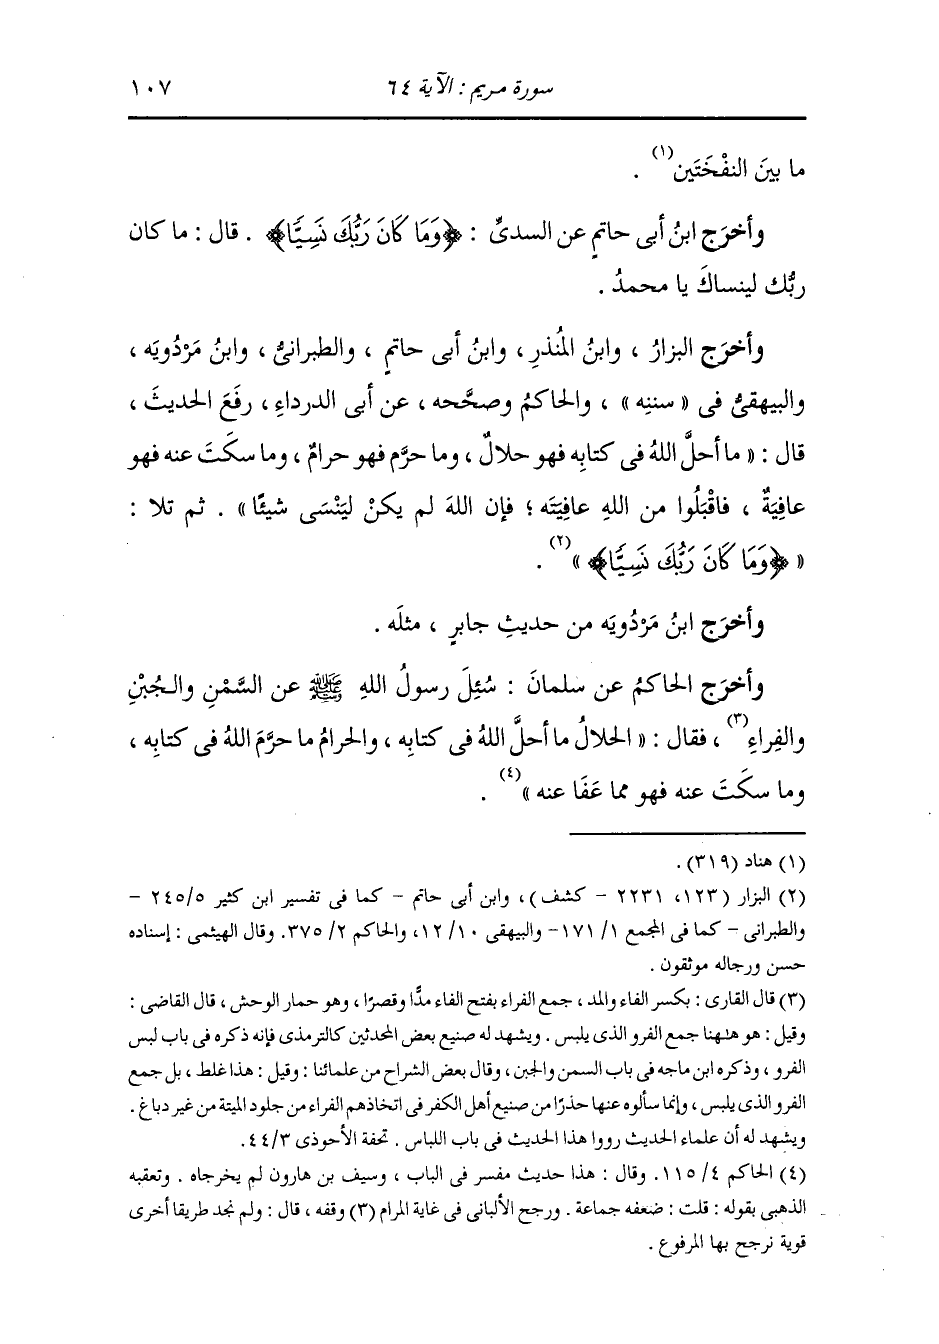 سورة مريم : الآية ٦٤ ١٠٧
ما بينَ النفْخَتَين(١) .
وأخرَج ابنُ أبى حاتمٍ عن السدىِّ : ﴿وَمَا كَانَ رَبُّكَ نَسِيًّا﴾ . قال : ما كان
ربُّك لينساكَ يا محمدُ .
وأخرَج البزارُ ، وابنُ المُنذرِ ، وابنُ أبى حاتمٍ ، والطبرانىُّ ، وابنُ مَرْدُويَه ،
والبيهقىُّ فى « سننِه » ، والحاكمُ وصحَّحه ، عن أبى الدرداءِ ، رفَعَ الحديثَ ،
قال : « ما أحلَّ اللهُ فى كتابِه فهو حلالٌ ، وما حرَّم فهو حرامٌ ، وما سكَتَ عنه فهو
عافِيَةٌ ، فاقْبَلُوا من اللهِ عافِيَتَه ؛ فإن اللهَ لم يكنْ ليَنْسَى شيئًا » . ثم تلا :
« ﴿وَمَا كَانَ رَبُّكَ نَسِيًّا﴾ »(٢) .
وأخرَج ابنُ مَرْدُويَه من حديثِ جابرٍ ، مثلَه .
وأخرَج الحاكمُ عن سلمانَ : سُئِلَ رسولُ اللهِ ﷺ عن السَّمْنِ والجُبْنِ
والفِراءِ(٣) ، فقال : « الحلالُ ما أحلَّ اللهُ فى كتابِه ، والحرامُ ما حرَّمَ اللهُ فى كتابِه ،
وما سكَتَ عنه فهو مما عَفَا عنه »(٤) .
(١) هناد (٣١٩) .
(٢) البزار (١٢٣، ٢٢٣١ – كشف)، وابن أبى حاتم – كما فى تفسير ابن كثير ٢٤٥/٥ –
والطبرانى – كما فى المجمع ١/ ١٧١– والبيهقى ١٠/ ١٢، والحاكم ٢/ ٣٧٥. وقال الهيثمى : إسناده
حسن ورجاله موثقون .
(٣) قال القارى : بكسر الفاء والمد ، جمع الفراء بفتح الفاء مدًّا وقصرًا ، وهو حمار الوحش ، قال القاضى :
وقيل : هو هلهنا جمع الفرو الذى يلبس . ويشهد له صنيع بعض المحدثين كالترمذى فإنه ذكره فى باب لبس
الفرو ، وذكره ابن ماجه فى باب السمن والجبن ، وقال بعض الشراح من علمائنا : وقيل : هذا غلط ، بل جمع
الفرو الذى يلبس ، وإنما سألوه عنها حذرًا من صنيع أهل الكفر فى اتخاذهم الفراء من جلود الميتة من غير دباغ .
ويشهد له أن علماء الحديث رووا هذا الحديث فى باب اللباس . تحفة الأحوذى ٤٤/٣.
(٤) الحاكم ٤/ ١١٥. وقال : هذا حديث مفسر فى الباب ، وسيف بن هارون لم يخرجاه . وتعقبه
الذهبى بقوله : قلت : ضعفه جماعة . ورجح الألبانى فى غاية المرام (٣) وقفه ، قال : ولم نجد طريقا أخرى
قوية نرجح بها المرفوع .